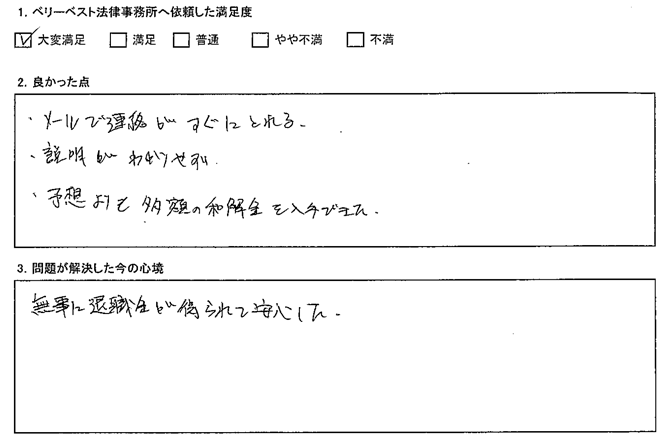 1. ベリーベスト法律事務所へ依頼した満足度
大変満足 満足 普通 やや不満 不満
2. 良かった点
・メールで連絡がすぐにとれる。
・説明がわかりやすい
・予想よりも多額の和解金を入手できた。
3. 問題が解決した今の心境
無事に退職金が得られて安心した。